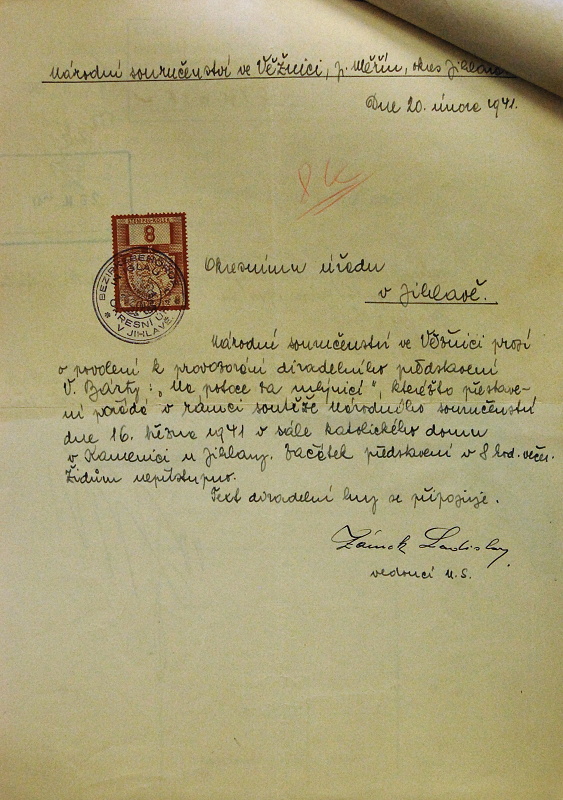 Národní souručenství ve Věžnici, p. Měřín, okres Jihlava
Dne 20. února 1941.
8 K
8
BEZIRKSBEHÖRDE
OKRESNÍ ÚŘAD
V JIHLAVĚ
Okresnímu úřadu
v Jihlavě.
Národní souručenství ve Věžnici prosí
o povolení k provozování divadelního představení
V. Bárty: „Na potoce za mlýnicí", kteréžto představe-
ní pořádá v rámci soutěže Národního souručenství
dne 16. března 1941 v sále katolického domu
v Kamenici u Jihlavy. Začátek představení v 8 hod. večer.
Židům nepřístupno.
Text divadelní hry se připojuje.
Ladislav
vedoucí N.S.